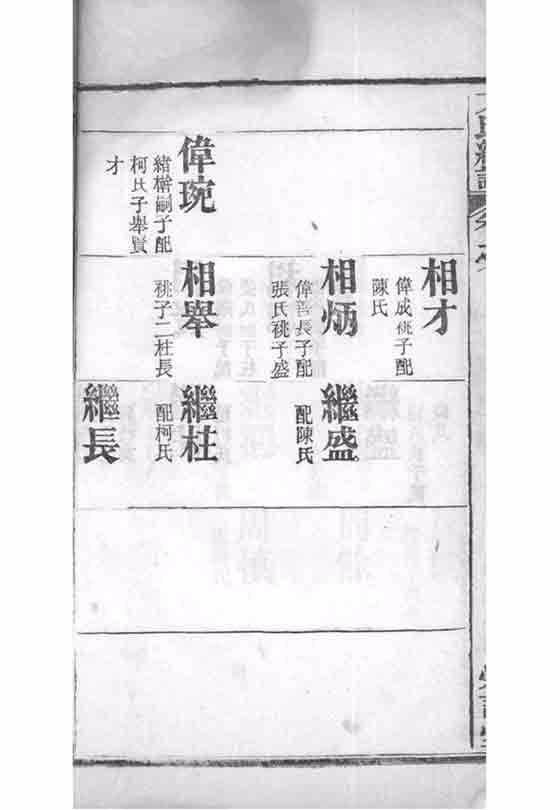 相才
偉成祧子配
陳氏
相炳
偉善長子配
張氏祧子盛
繼盛
配陳氏
偉琬
緒楷嗣子配
柯氏子舉賢
才
相舉
祧子二柱長
繼柱
配柯氏
繼長